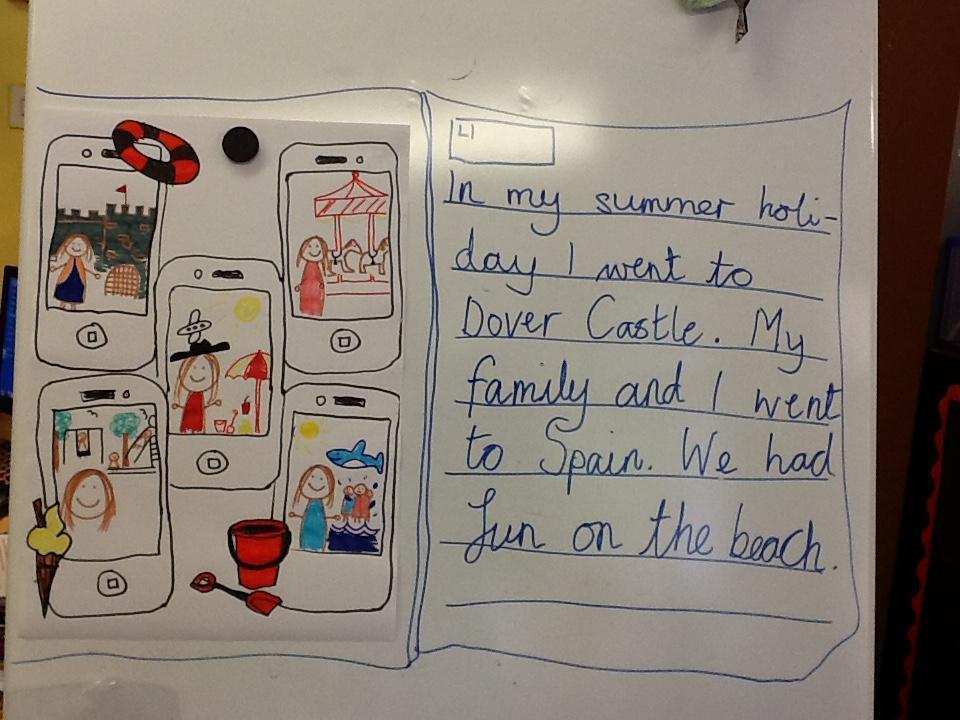 LI
In my summer holi-
day I went to
Dover Castle. My
family and I went
to Spain. We had
fun on the beach.